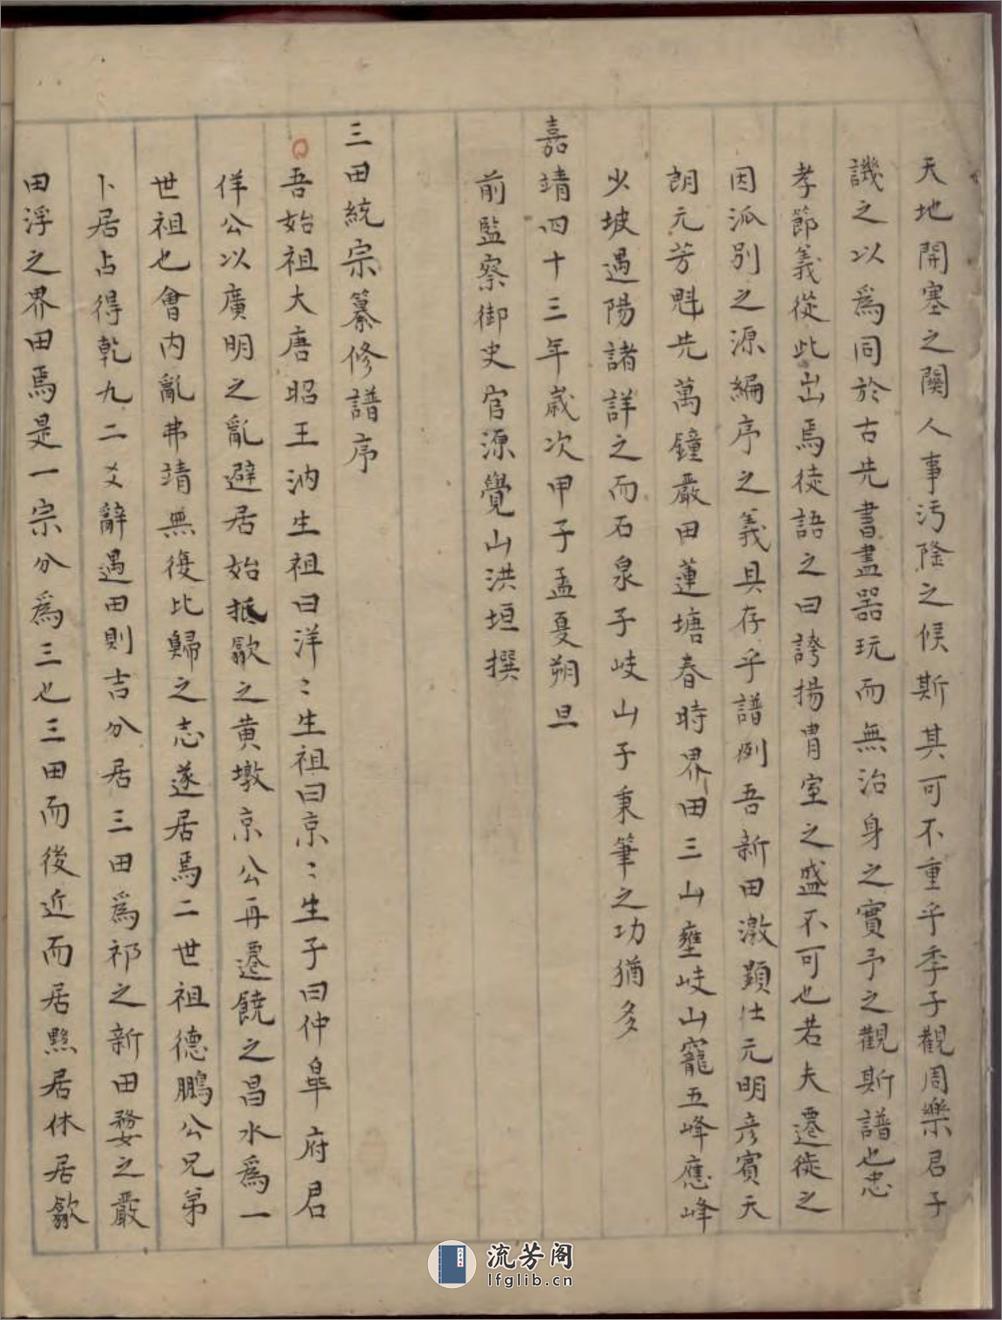 天地開塞之關人事污隆之候斯其可不重乎季子觀周樂君子
譏之以爲同於古先書畫器玩而無治身之實予之觀斯譜也忠
孝節義從此出焉徒語之曰誇揚胄室之盛不可也若夫遷徙之
因派別之源編序之義具存乎譜例吾新田激顥仕元明彦賓天
朗元芳魁先萬鐘嚴田蓮塘春時界田三山壅岐山寵五峰應峰
少坡遇陽諸詳之而石泉子岐山子秉筆之功猶多
嘉靖四十三年歲次甲子孟夏朔旦
前監察御史官源覺山洪垣撰
三田統宗纂修譜序
吾始祖大唐昭王汭生祖曰洋〻生祖曰京〻生子曰仲皐府君
佯公以廣明之亂避居始抵歙之黄墩京公再遷饒之昌水爲一
世祖也會内亂弗靖無復比歸之志遂居焉二世祖德鵬公兄弟
卜居占得乾九二爻辭遇田則吉分居三田爲祁之新田婺之嚴
田浮之界田焉是一宗分爲三也三田而後近而居黟居休居歙
流芳阁
lfglib.cn